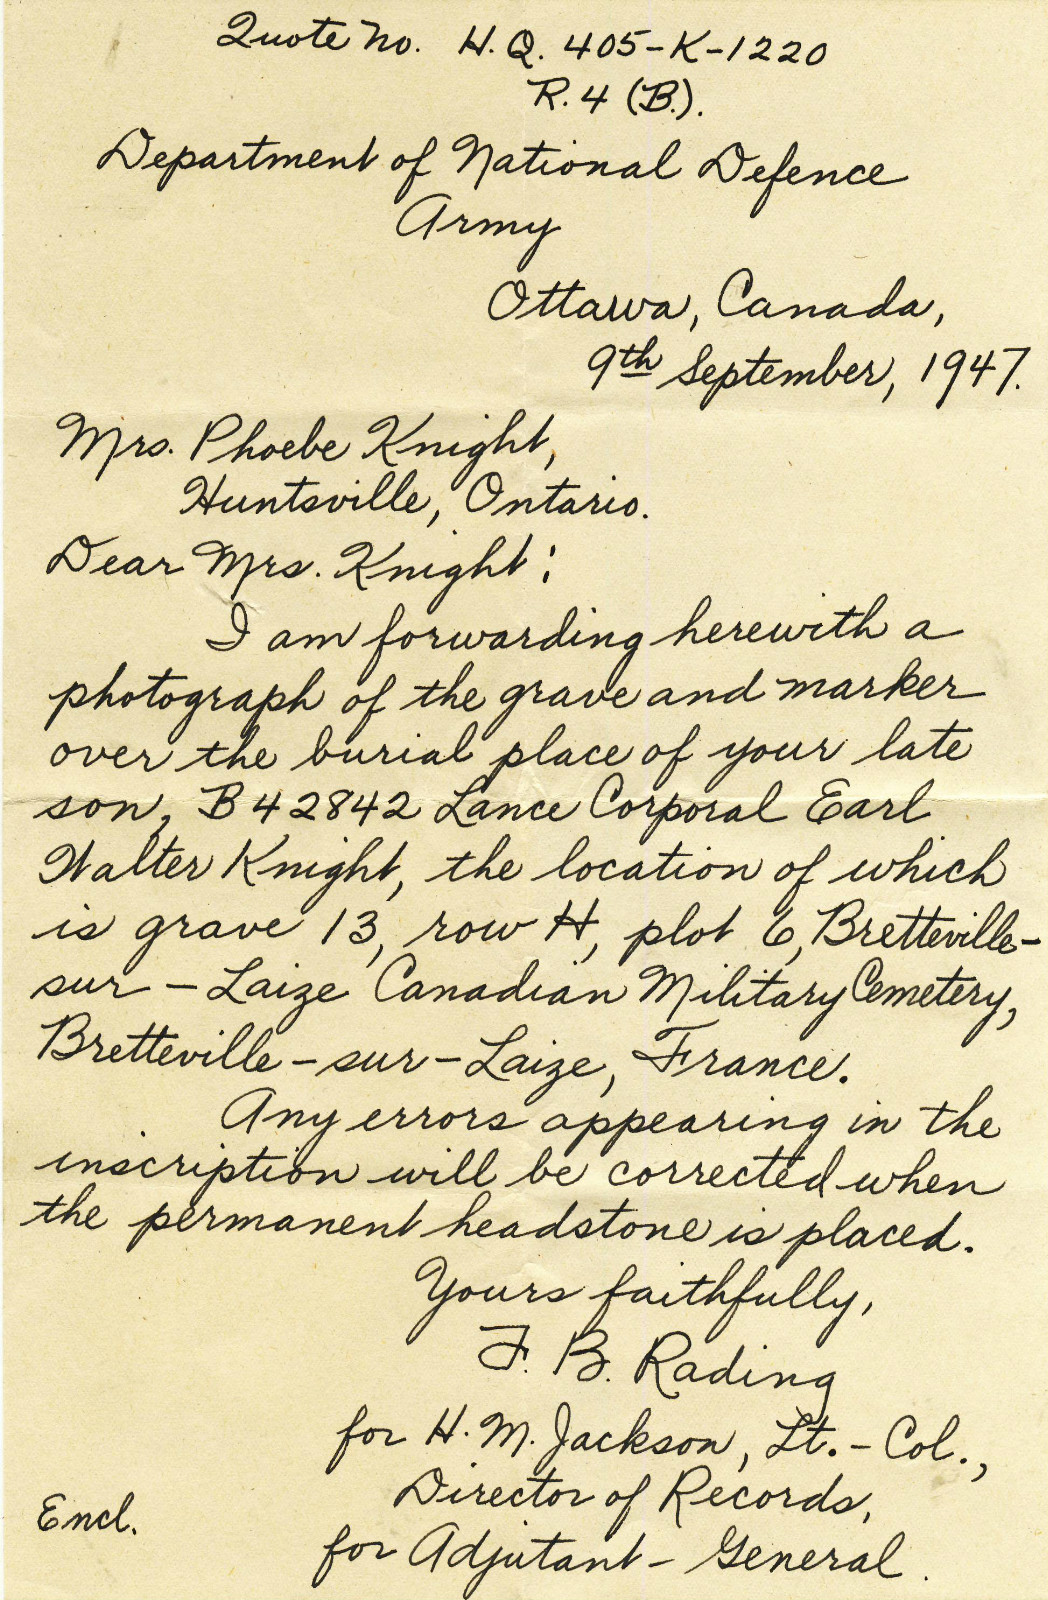 Quote No. H.Q. 405-K-1220
R.4 (B.).
Department of National Defence
Army
Ottawa, Canada,
9th September, 1947.
Mrs. Phoebe Knight,
Huntsville, Ontario.
Dear Mrs. Knight:
I am forwarding herewith a
photograph of the grave and marker
over the burial place of your late
son, B42842 Lance Corporal Earl
Walter Knight, the location of which
is grave 13, row H, plot 6, Bretteville-
sur-Laize Canadian Military Cemetery,
Bretteville-sur-Laize, France.
Any errors appearing in the
inscription will be corrected when
the permanent headstone is placed.
Yours faithfully,
F. B. Rading
for H. M. Jackson, Lt.-Col.,
Director of Records,
Encl.
for Adjutant-General.